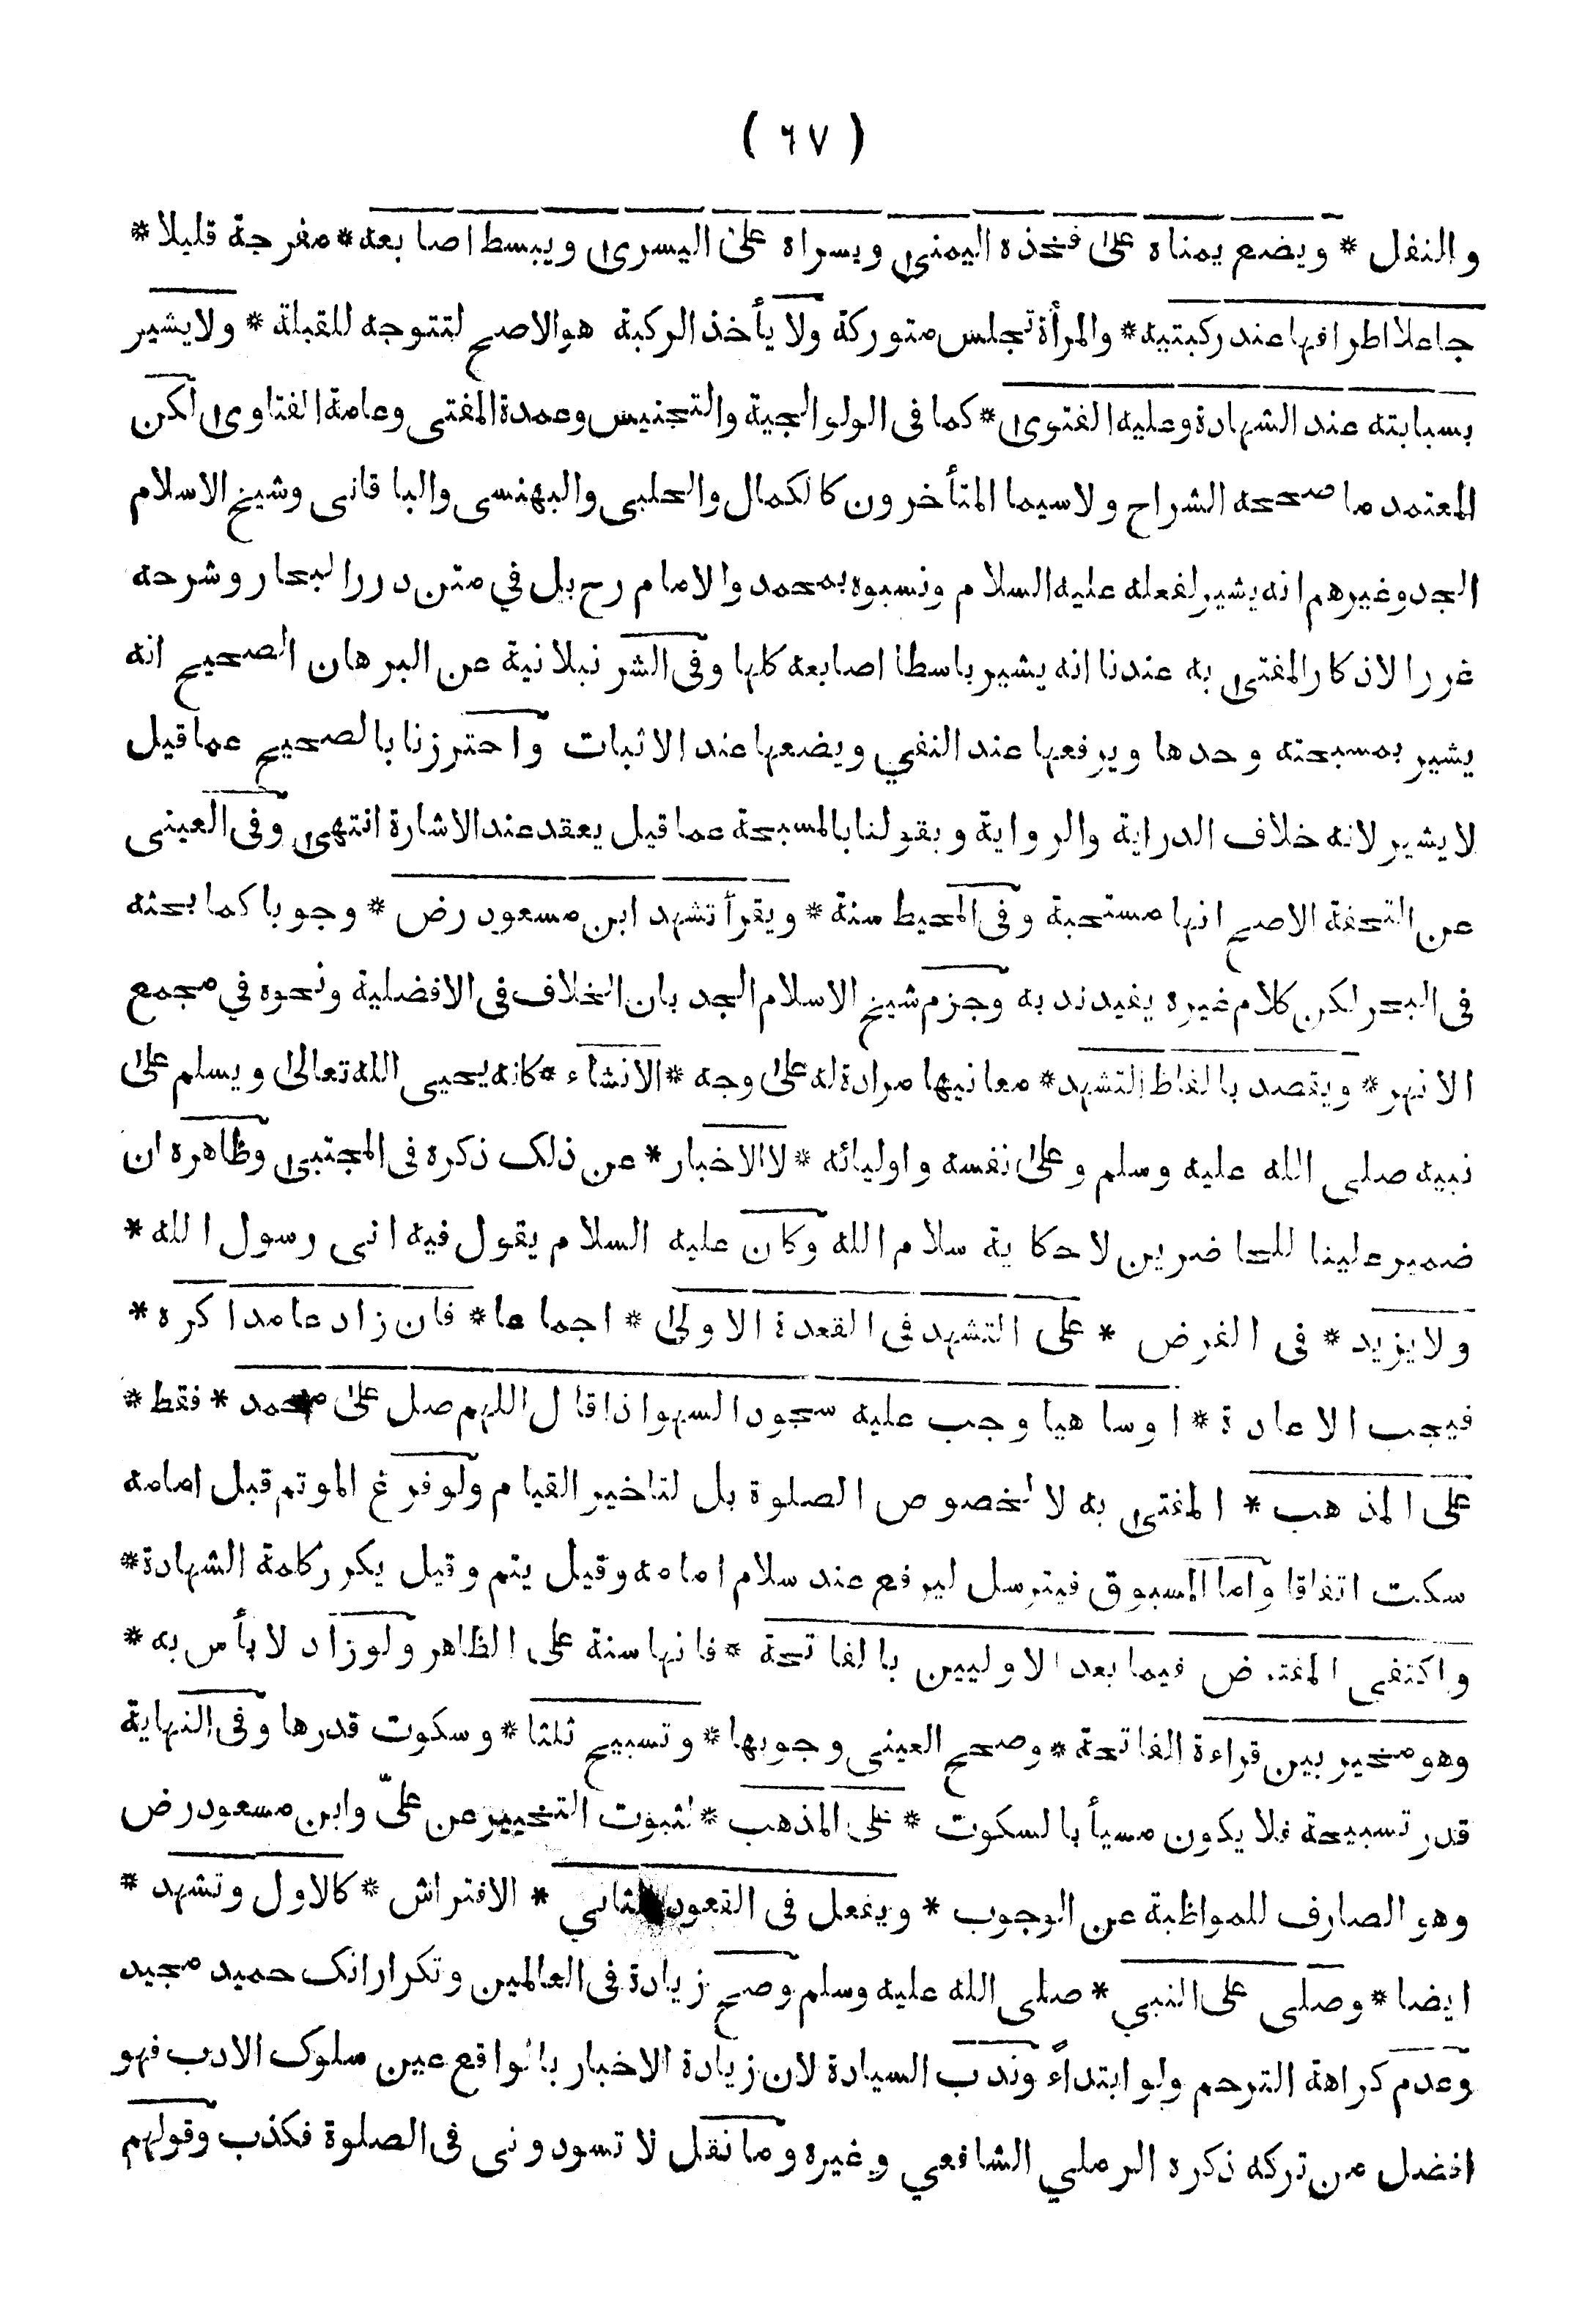 ( ٦٧ )
والنفل * ويضع يمناه على فخذه اليمنى ويسراه على اليسرى ويبسط اصابعه * مفرجة قليلا *
جاعلا اطرافها عند ركبتيه * والمرأة تجلس متوركة ولا يأخذ الركبة هو الاصح لتتوجه للقبلة * ولا يشير
بسبابته عند الشهادة وعليه الفتوى * كما فى الولوالجية والتجنيس وعمدة المفتى وعامة الفتاوى لكن
المعتمد ما صححه الشراح ولاسيما المتأخرون كالكمال والحلبى والبهنسى والباقانى وشيخ الاسلام
الجد وغيرهم انه يشير لفعله عليه السلام ونسبوه بمحمد والامام رح بل في متن درر البحار وشرحه
غرر الاذكار المفتى به عندنا انه يشير باسطا اصابعه كلها وفى الشرنبلانية عن البرهان الصحيح انه
يشير بمسبحته وحدها ويرفعها عند النفي ويضعها عند الاثبات واحترزنا بالصحيح عما قيل
لا يشير لانه خلاف الدراية والرواية وبقولنا بالمسبحة عما قيل يعقد عند الاشارة انتهى وفى العينى
عن التحفة الاصح انها مستحبة وفى المحيط سنة * ويقرأ تشهد ابن مسعود رض * وجوبا كما بحثه
فى البحر لكن كلام غيره يفيد ندبه وجزم شيخ الاسلام الجد بان الخلاف فى الافضلية ونحوه في مجمع
الانهر * ويقصد بالفاظ التشهد * معانيها مرادة له على وجه * الانشاء * كانه يحيى الله تعالى ويسلم على
نبيه صلى الله عليه وسلم وعلى نفسه واوليائه * لا الاخبار * عن ذلك ذكره فى المجتبى وظاهره ان
ضمير علينا للحاضرين لا حكاية سلام الله وكان عليه السلام يقول فيه انى رسول الله *
ولا يزيد * فى الفرض * على التشهد فى القعدة الاولى * اجماعا * فان زاد عامدا كره *
فيجب الاعادة * اوساهيا وجب عليه سجود السهو اذا قال اللهم صل على محمد * فقط *
على المذهب * المفتى به لا لخصوص الصلوة بل لتاخير القيام ولو فرغ الموتم قبل امامه
سكت اتفاقا واما المسبوق فيترسل ليرفع عند سلام امامه وقيل يتم وقيل يكرر كلمة الشهادة *
واكتفى المفترض فيما بعد الاوليين بالفاتحة * فانها سنة على الظاهر ولو زاد لا بأس به *
وهو مخير بين قراءة الفاتحة * وصحح العينى وجوبها * وتسبيح ثلثا * وسكوت قدرها وفى النهاية
قدر تسبيحة فلا يكون مسيأ بالسكوت * على المذهب * لثبوت التخيير عن علىّ وابن مسعود رض
وهو الصارف للمواظبة عن الوجوب * ويفعل فى القعود الثانى * الافتراش * كالاول وتشهد *
ايضا * وصلى على النبي * صلى الله عليه وسلم وصح زيادة فى العالمين وتكرار انك حميد مجيد
وعدم كراهة الترحم ولو ابتداءً وندب السيادة لان زيادة الاخبار بالواقع عين سلوك الادب فهو
افضل من تركه ذكره الرملي الشافعي وغيره وما نقل لا تسودونى فى الصلوة فكذب وقولهم